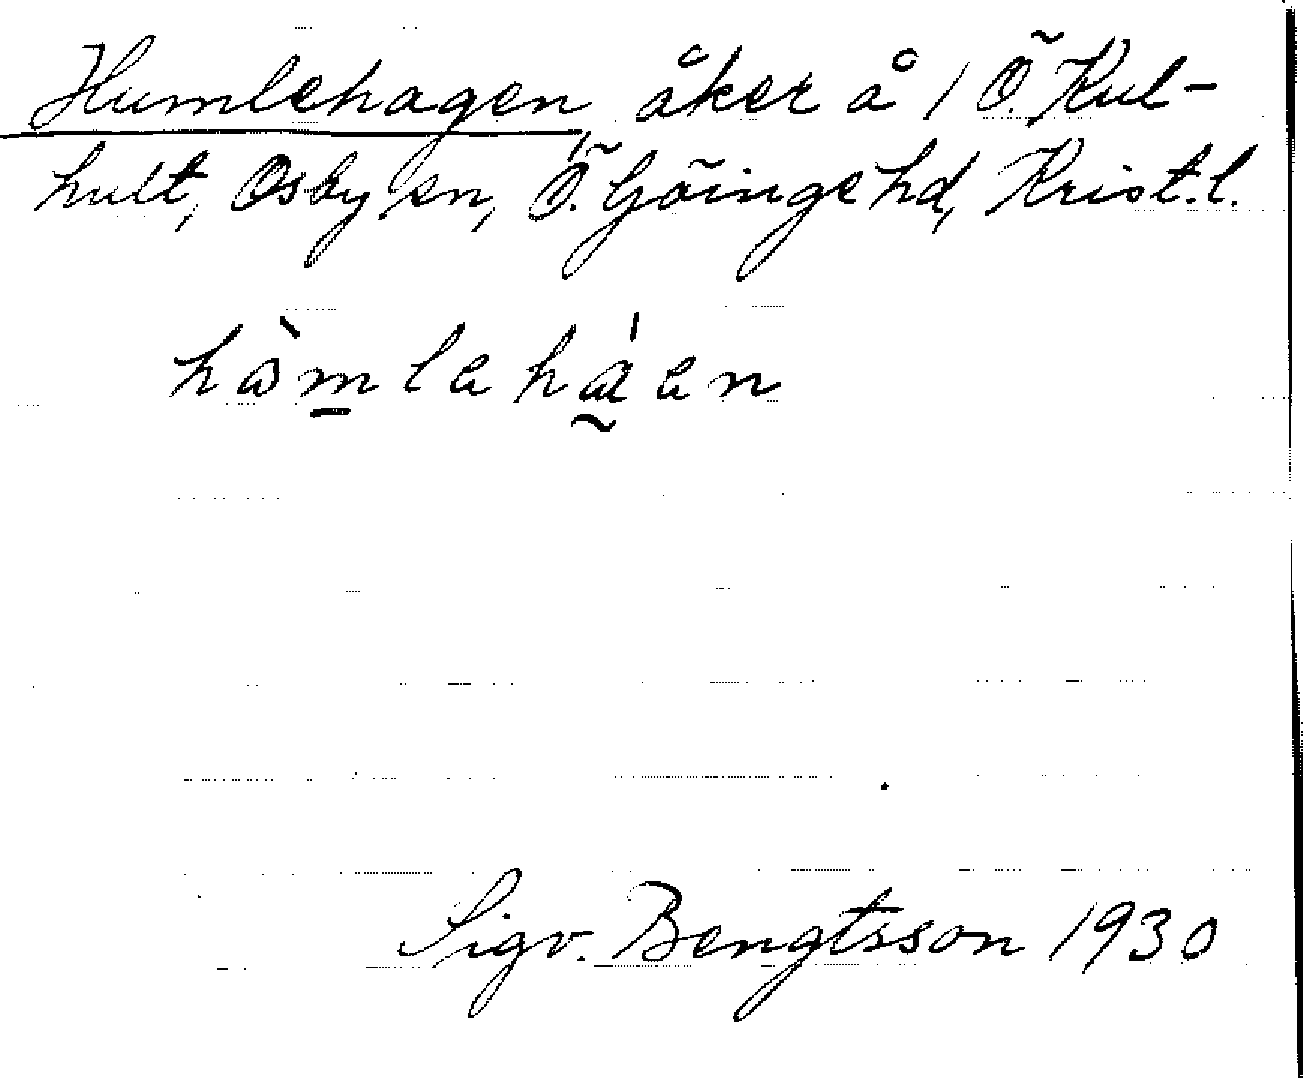 Humlehagen, åker å 1 Ö. Kul-
hult, Osby sn, Ö. Göinge hd, Krist. l.
hòmleháen
Sigv. Bengtsson 1930